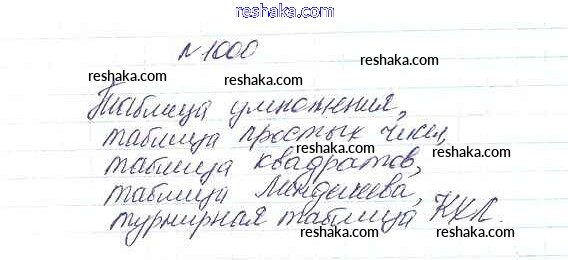 reshaka.com
№1000
reshaka.com reshaka.com
Таблица умножения,
reshaka.com
таблица простых чисел,
reshaka.com
таблица квадратов,
reshaka.com
таблица Менделеева,
reshaka.com
турнирная таблица КХЛ.
reshaka.com
reshaka.com